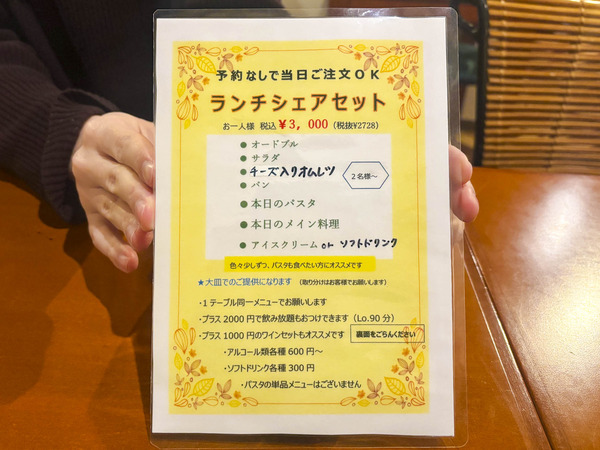 予約なしで当日ご注文OK
ランチシェアセット
お一人様 税込 ¥3,000 (税抜¥2728)
● オードブル
● サラダ
● チーズ入りオムレツ
● パン
2名様～
● 本日のパスタ
● 本日のメイン料理
● アイスクリーム or ソフトドリンク
色々少しずつ、パスタも食べたい方にオススメです
★大皿でのご提供になります (取り分けはお客様でお願いします)
・1テーブル同一メニューでお願いします
・プラス2000円で飲み放題もおつけできます(Lo.90分)
・プラス1000円のワインセットもオススメです 裏面をごらんください
・アルコール類各種600円～
・ソフトドリンク各種300円
・パスタの単品メニューはございません